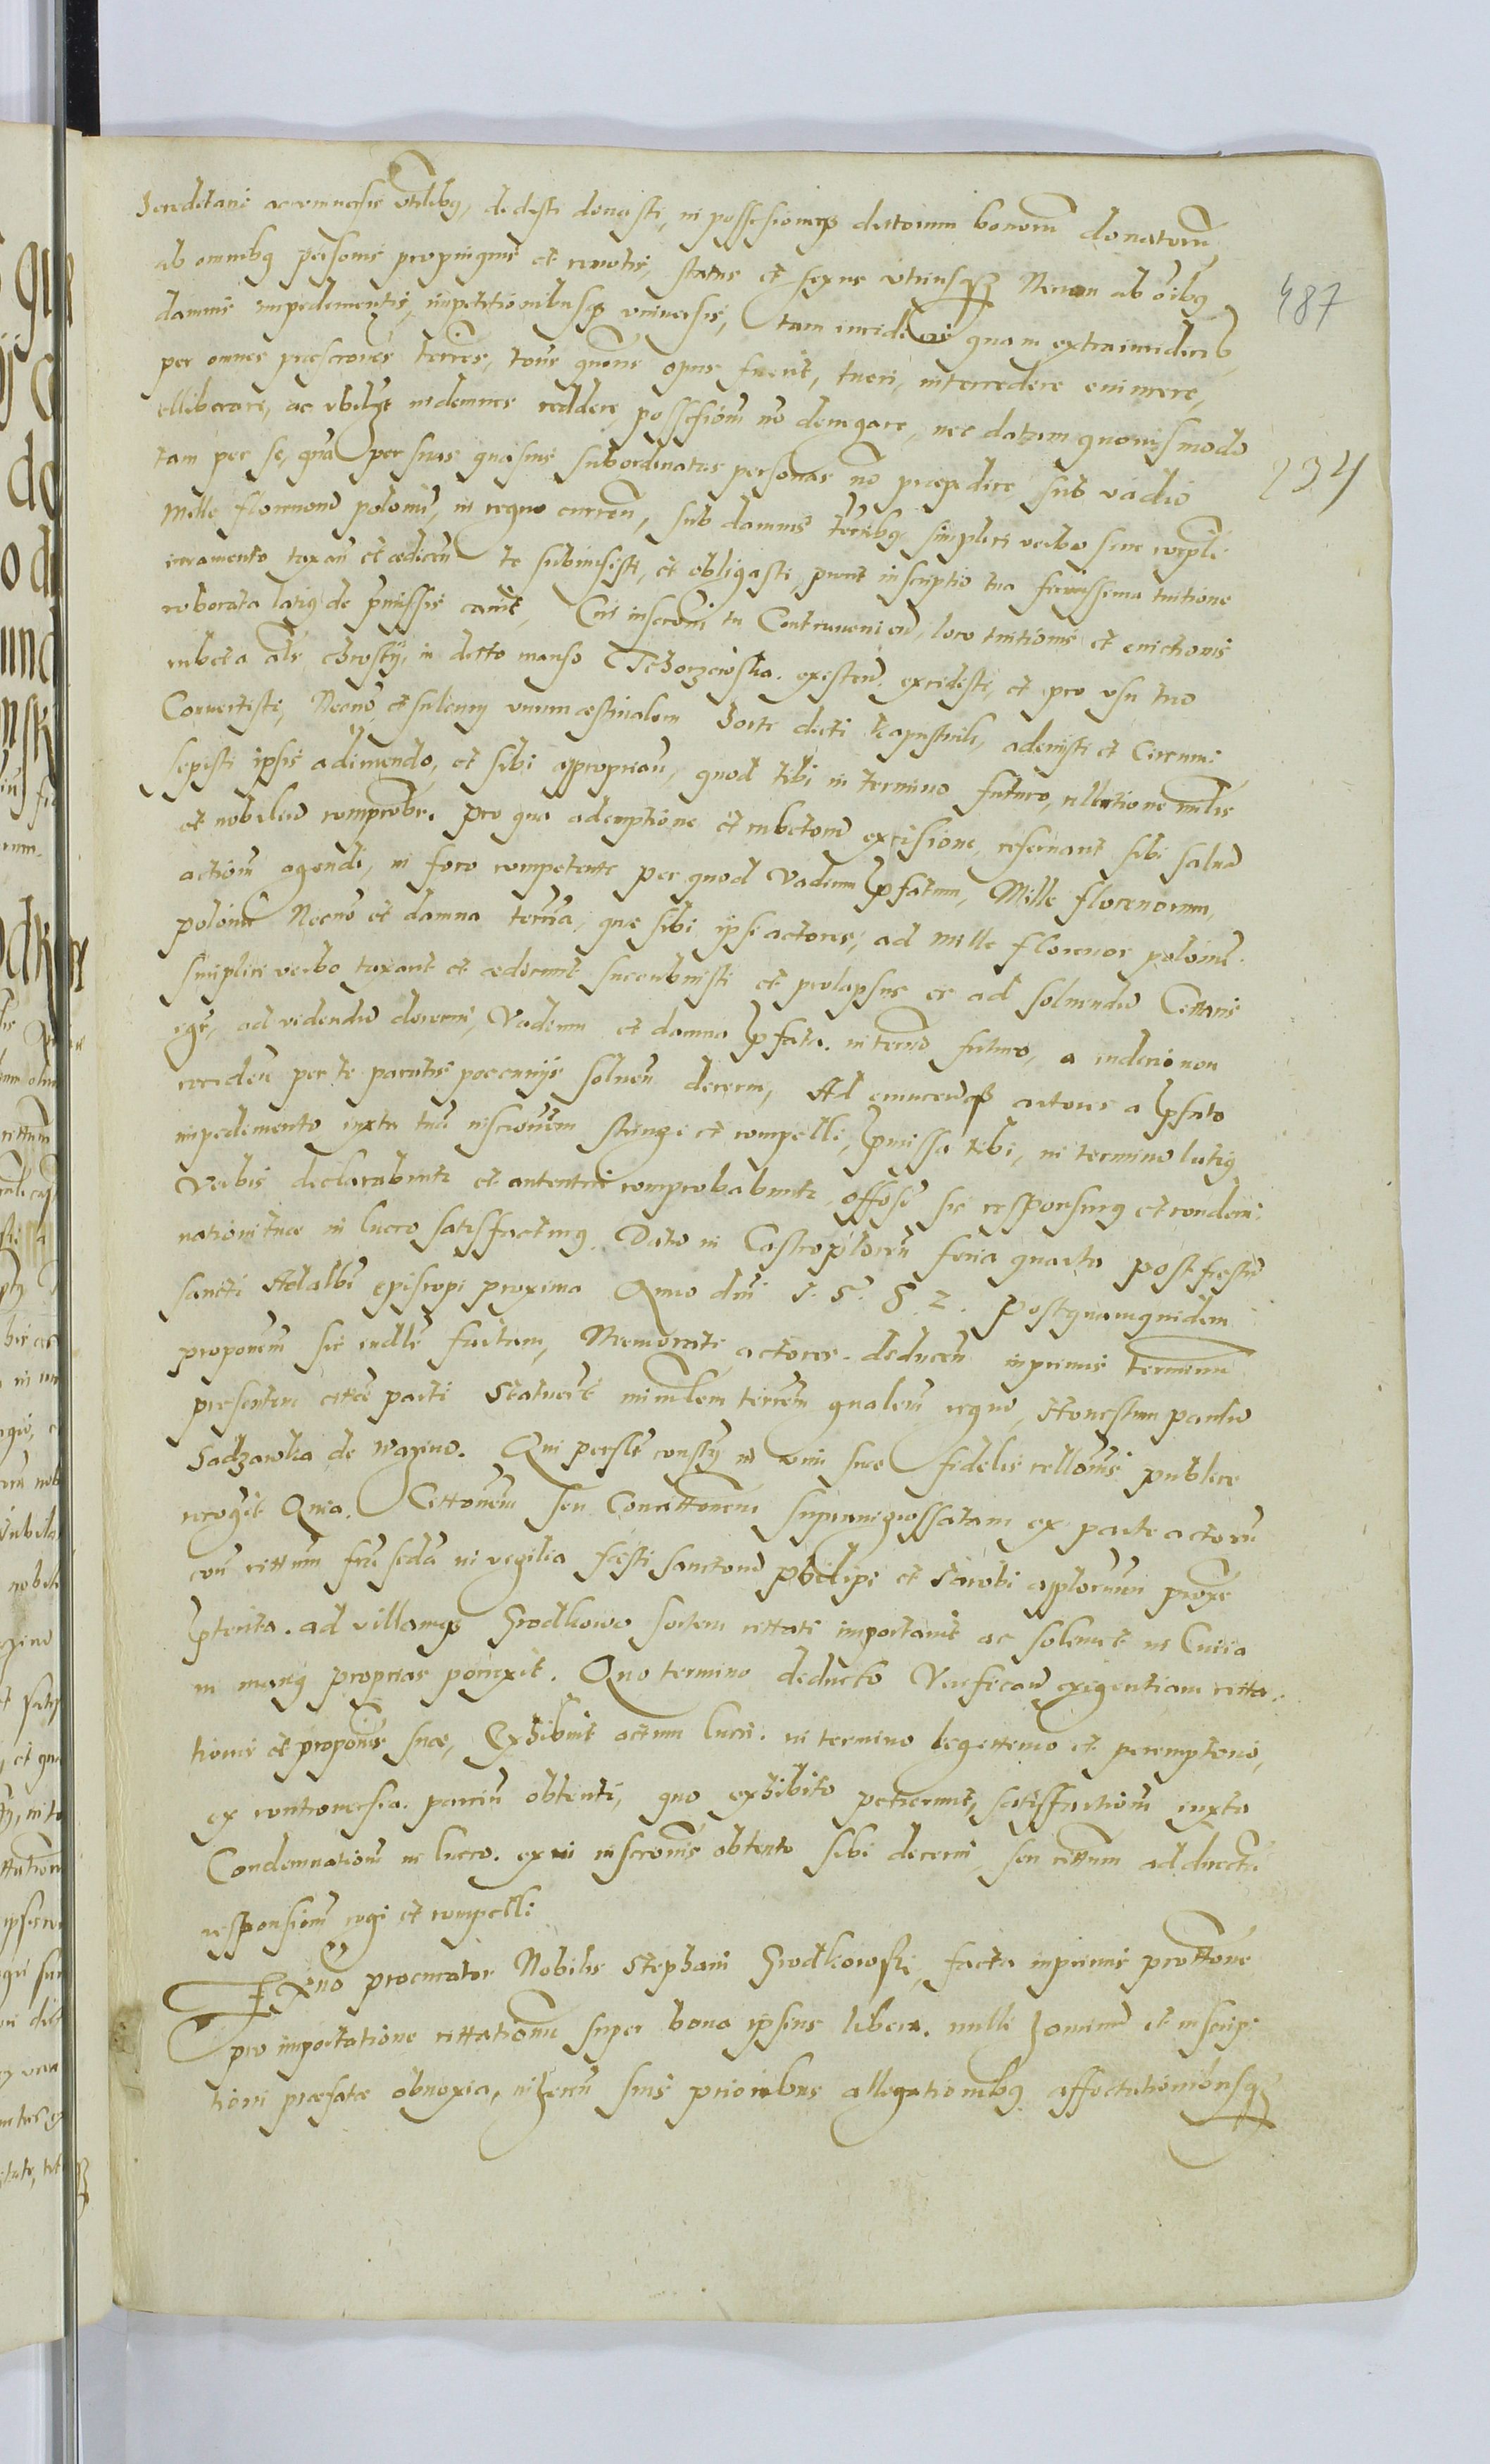 hereditarie ac universis utilibus, dedisti donasti, in possessioneque dictorum bonorum donatorum
ab omnibus personis propinquis et remotis, status et sexus utriusque Necnon ab oibus
487
damnis impedimentis, impetitionibusque universis, tam iuridicis quam extraiuridicis
per omnes praescrones terres, tous quens opus fuerit, tueri, intercedere evincere,
elliberare, ac ubilet indemnes reddere, possesionem no denegare, nec datam quovismodo
234
tam per se, qua per suas quasvis subordinatas personas no praepedire sub vadio
Mille florenorum polonium, in regno curren, sub damnis terribus simplici verbo sine corpli
iuramento taxan et aedicen te submisisti, et obligasti, prout inscriptio tua fervissima tuitione
roborata latius de pmissis canit, Cui inscroni tu Contraveniend, loco tuitionis et evictionis
rubeta als chrosty, in dicto manso Tchorzewska existen. excidisti, et pro usu tuo
Convertisti, Necno et sulcum unum aestivalem horti dicti kapustnik, ademisti et Circum
sepisti ipsis adimendo, et sibi appropriau, quod tibi in termino futuro, rellatione mlis
et nobilium comprobr. Pro qua ademptione et rubetorum excisione, reservant sibi salvam
actionem agendi, in foro competenti per quod Vadium pfatum, Mille florenorum,
polonium Necno et damna terria, quae sibi ipsi actores, ad mille florenos polonium
simplici verbo taxant et aedicunt succubuisti et prolapsus es ad solvendum Cittaris
igr, ad videndum decerni, Vadium et damna pfata. in termino futuro, a iudicio non
receden per te paratis poecuniis solven decerni, Ad evincendque actores a pfato
impedimento iuxta tua inscrouem stringi et compelli, pmissa tibi, in termino latius
Verbis declarabunt et autentice comprobabunt, offose sic responsurus et condem
nationi tuae in lucro satisfacturus. Datum in Castro plocen feria quarta post festum
sancti Adalbi episcopi proxima Anno dni 1.5.8.2. Postquamquidem
proponem sic iudle factam, Memorati actores. deducen inprimis terminum
praesentem citte parti Statuert minlem terrem gnalem regni, Honestum paulum
Sadzawka de wazino. Qui perslr constus in vim suae fidelis rellonis publice
recogit Quia Cittonem seu Concittonem supraingrossatam ex parte actorum
con cittum fria seda in vigilia festi sanctorum Philipi et Iacobi applorum proxe
pterita. ad villamque Srodkowo sortem cittati importavit ac solemt in Curia
in manus proprias porrexit. Quo termino deducto Verificam exigentiam citta.
tionis et propoonis suae, Exhibuit actum lucri. in termino legittimo et peremptorio,
ex controversia. parcium obtenti, quo exhibito petierunt, satisfactionem iuxta
Condemnationem in lucro. ex vi inscronis obtento sibi decerni, seu cittum ad directam
responsionem cogi et compelli
Ex quo procurator Nobilis Stephani Srodkowski, facta inprimis prottone
pro importatione cittationum super bona ipsius libera. nulli et inscrip
tioni praefatae obnoxia, suis prioribus allegationibus affectationibusque